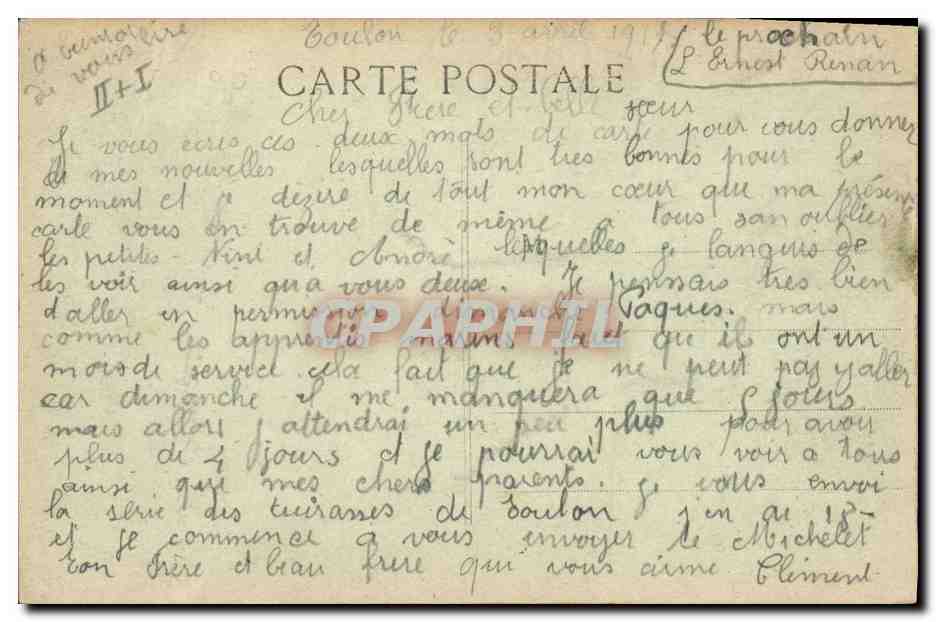 Toulon le 3 avril 191
le prochain
L'Ernest Renan
à
de vous
II + I
CARTE POSTALE
Cher Frère et belle sœur
Je vous ecris ces deux mots de carte pour vous donner
de mes nouvelles lesquelles sont tres bonnes pour le
moment et je désire de tout mon cœur que ma présente
carte vous en trouve de même a tous san oublier
les petites Nini et Andrè lesquelles je languis de
les voir ainsi qu'a vous deux. Je pensais tres bien
d'aller en permission dimanche Paques. mais
comme les apprentis marins faut que il ont un
mois de service cela fait que je ne peut pas y aller
car dimanche il me manquera que 5 jours
mais alors j attendrai un peu plus pour avoir
plus de 4 jours et je pourrai vous voir a tous
ainsi que mes chers parents. je vous envoi
la série des cuirassés de Toulon j'en ai 18-
et je commence a vous envoyer le Michelet
Ton Frère et beau frere qui vous aime Clèment
CPAPHIL